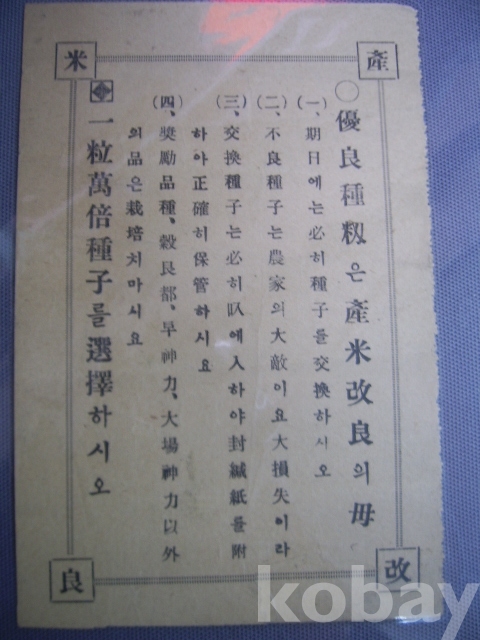 產
米
改
良
○優良種籾은產米改良의母
(一)、期日에는必히種子를交換하시오
(二)、不良種子는農家의大敵이요大損失이라
(三)、交換種子는必히叺에入하야封緘紙를附
하야正確히保管하시요
(四)、奬勵品種、穀良都、早神力、大場神力以外
의品은栽培치마시요
一粒萬倍種子를選擇하시오
kobay